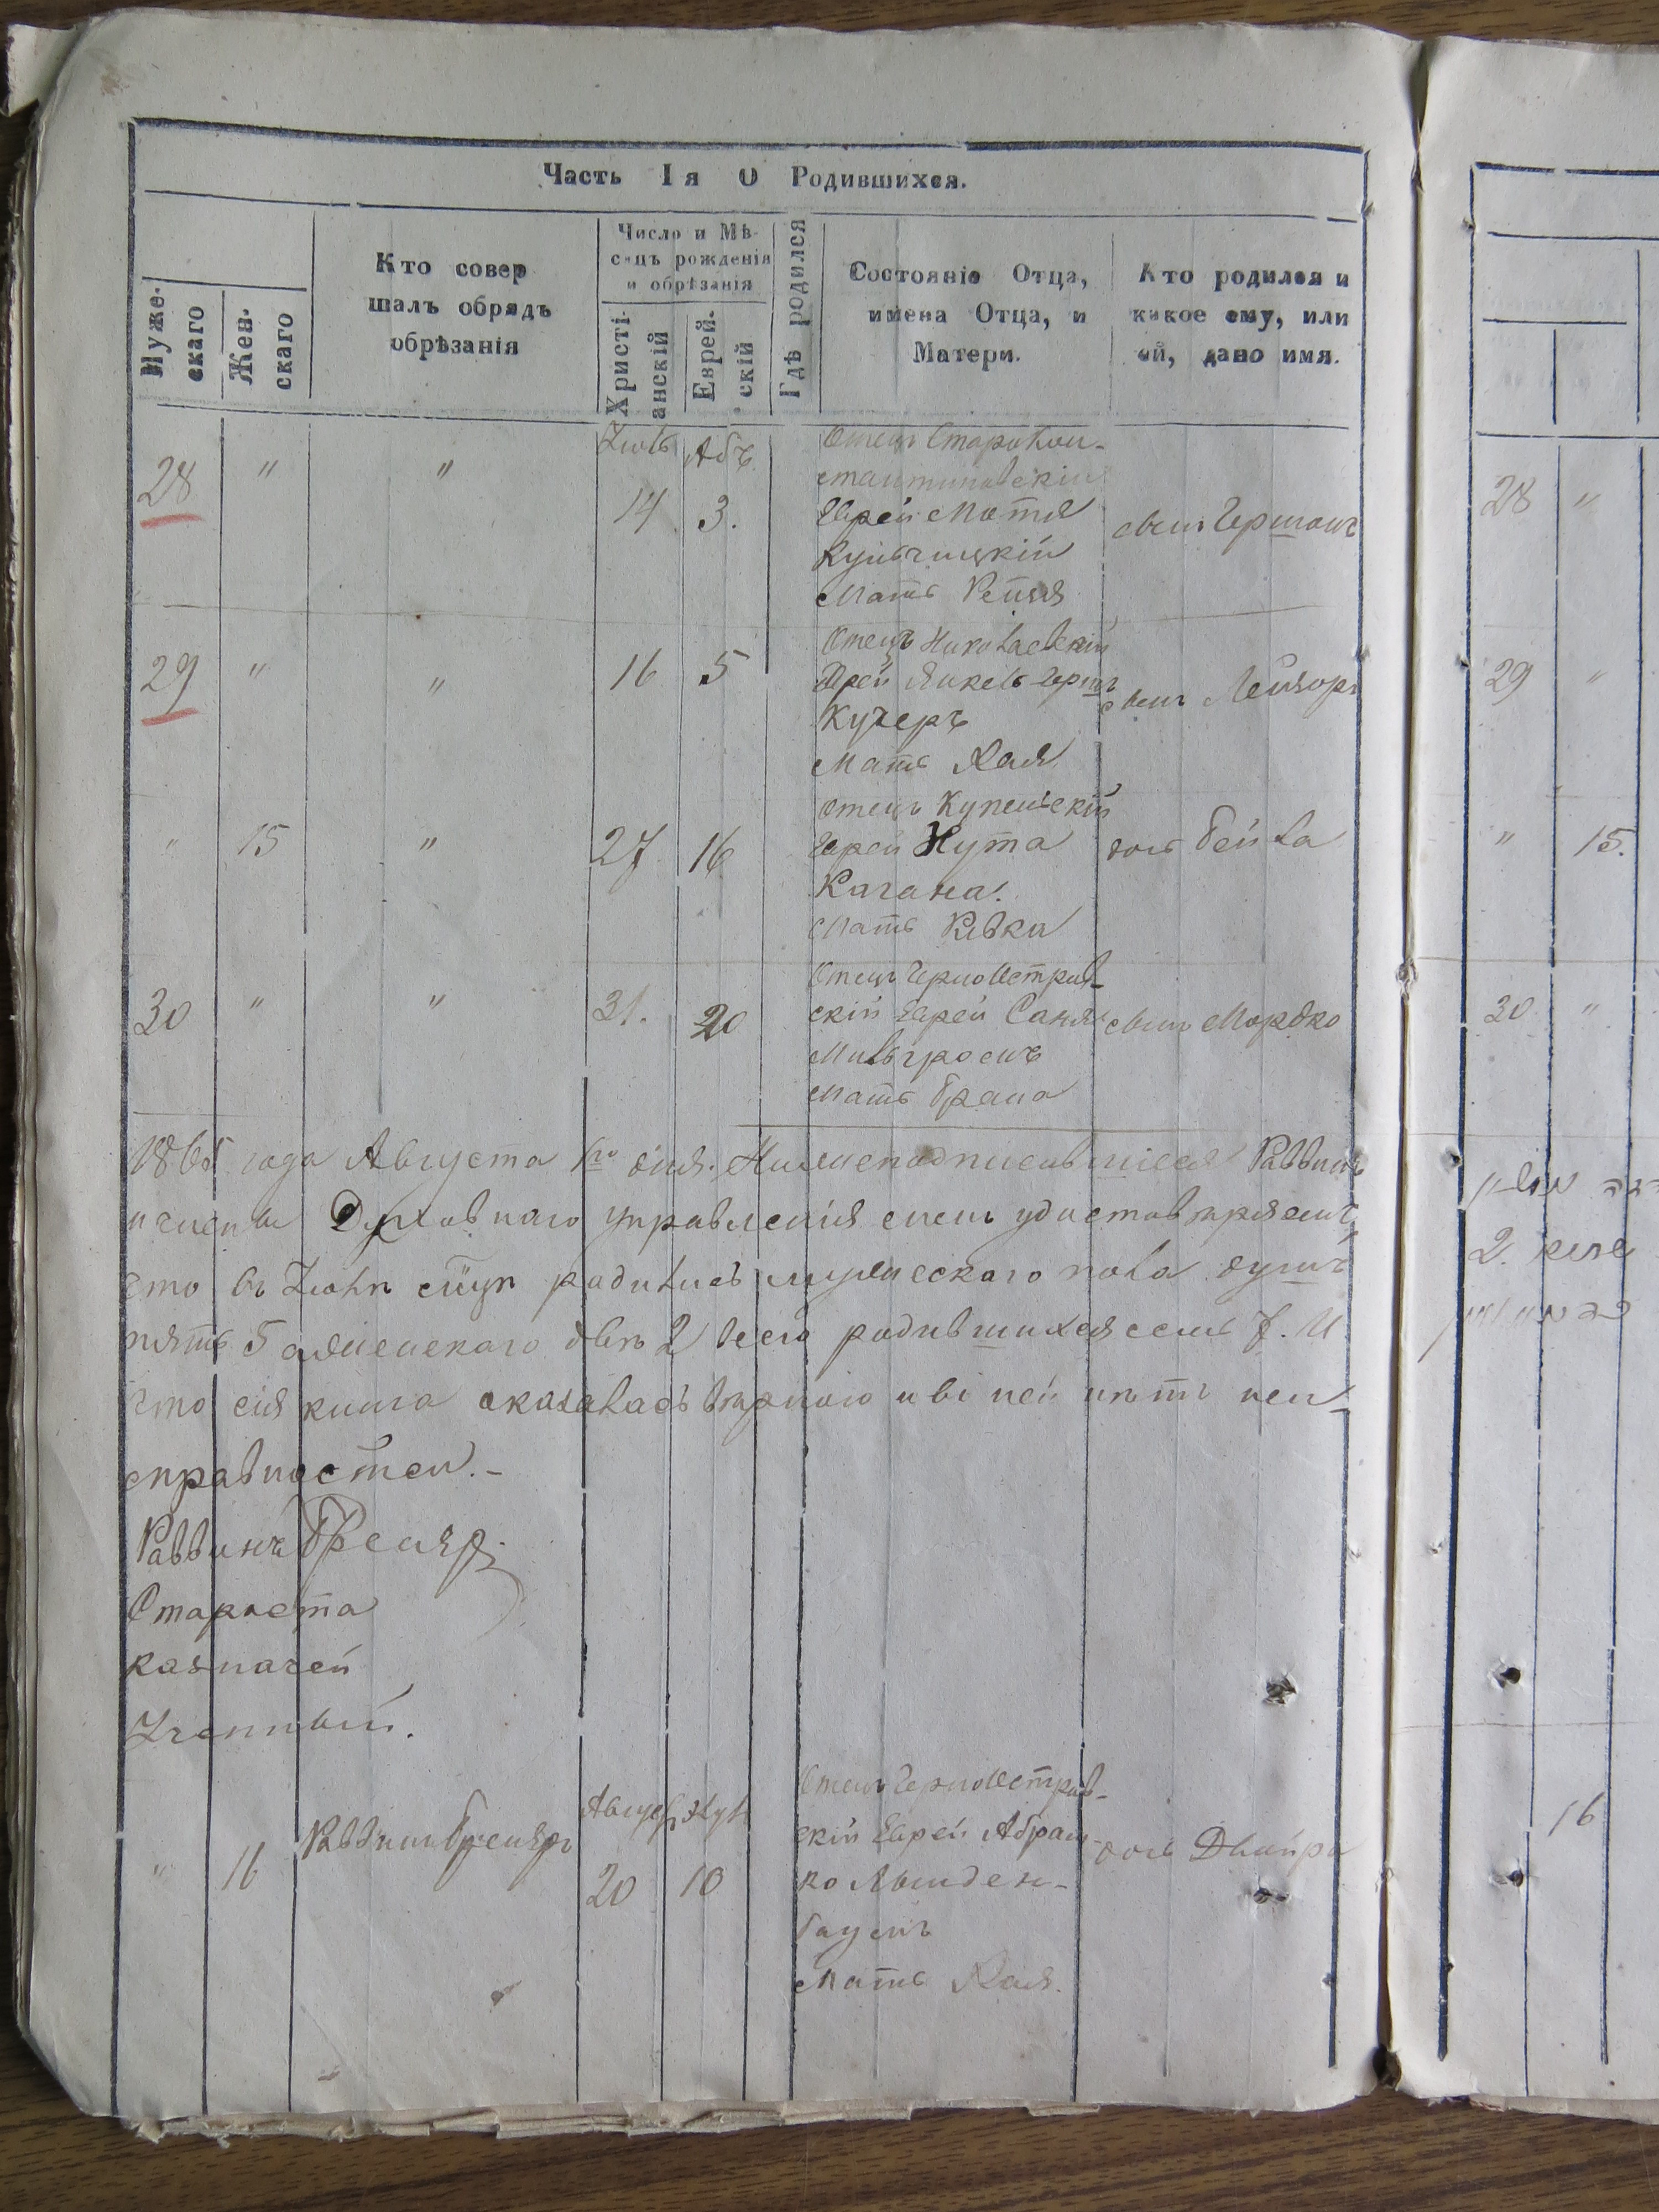 Часть Iя О Родившихся.
Мужескаго
Женскаго
Кто совер
шалъ обрядъ
обрѣзанія
Число и Мѣ-
сяцъ рожденія
и обрѣзанія
Христі-
анскій
Еврей-
скій
Гдѣ родился
Состояніе Отца,
имена Отца, и
Матери.
Кто родился и
какое ему, или
ей, дано имя.
28 " " Іюль 14 Абъ 3.
Отецъ СтароКон-
стантиновскій
Еврей Мотя
Кульчицкій
Мать Рейзя
сынъ Гершонъ
29 " " 16 5
Отецъ Николаевскій
Еврей Янкель Гершъ
Кучеръ
Мать Хая
сынъ Лейзоръ
" 15 " 27 16
Отецъ Купельскій
Еврей Нута
Кагана.
Мать Ривка
дочь Бейла
30 " " 31. 20
Отецъ ЧерноОстров-
скій Еврей Саня
Мильгромъ
Мать Брана
сынъ Мордко
1865 года Августа 1го дня. Нижеподписавшіеся Раввинъ
и члены Духовнаго управленія симъ удостовѣряемъ,
что въ Іюлѣ родилось мужескаго пола душъ
пять 5 а женскаго двѣ 2 всего родившихся семь 7. И
что сія книга оказалась вѣрною и въ ней нѣтъ неи-
справностей.-
Раввинъ
Староста
Казначей
Ученный.
" 16 Раввинъ Августъ 20 10
Отецъ ЧерноОстров-
скій Еврей Абрам-
ко Линден-
баумъ
Мать Хая.
дочь Двойра
28 "
29 "
" 15.
30 "
16